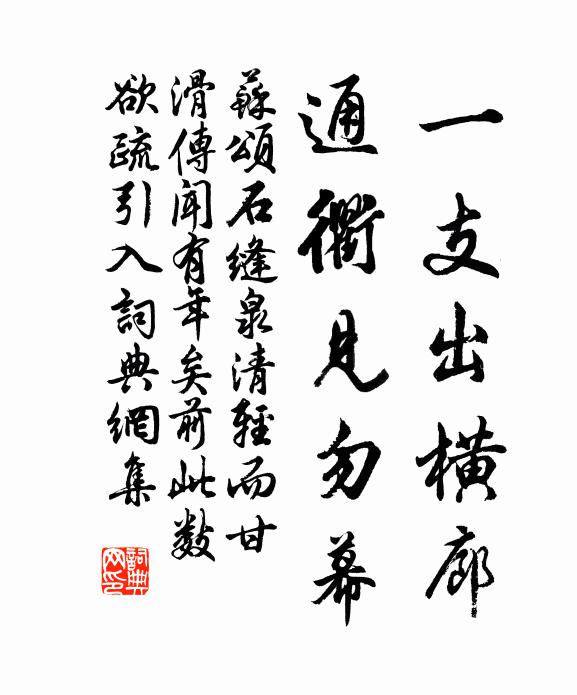 一支出橫廊
通衢見勿幕
蘇頌石縫泉清輕而甘
滑傳聞有年矣前此數
欲疏引入詞典網集
詞典网印